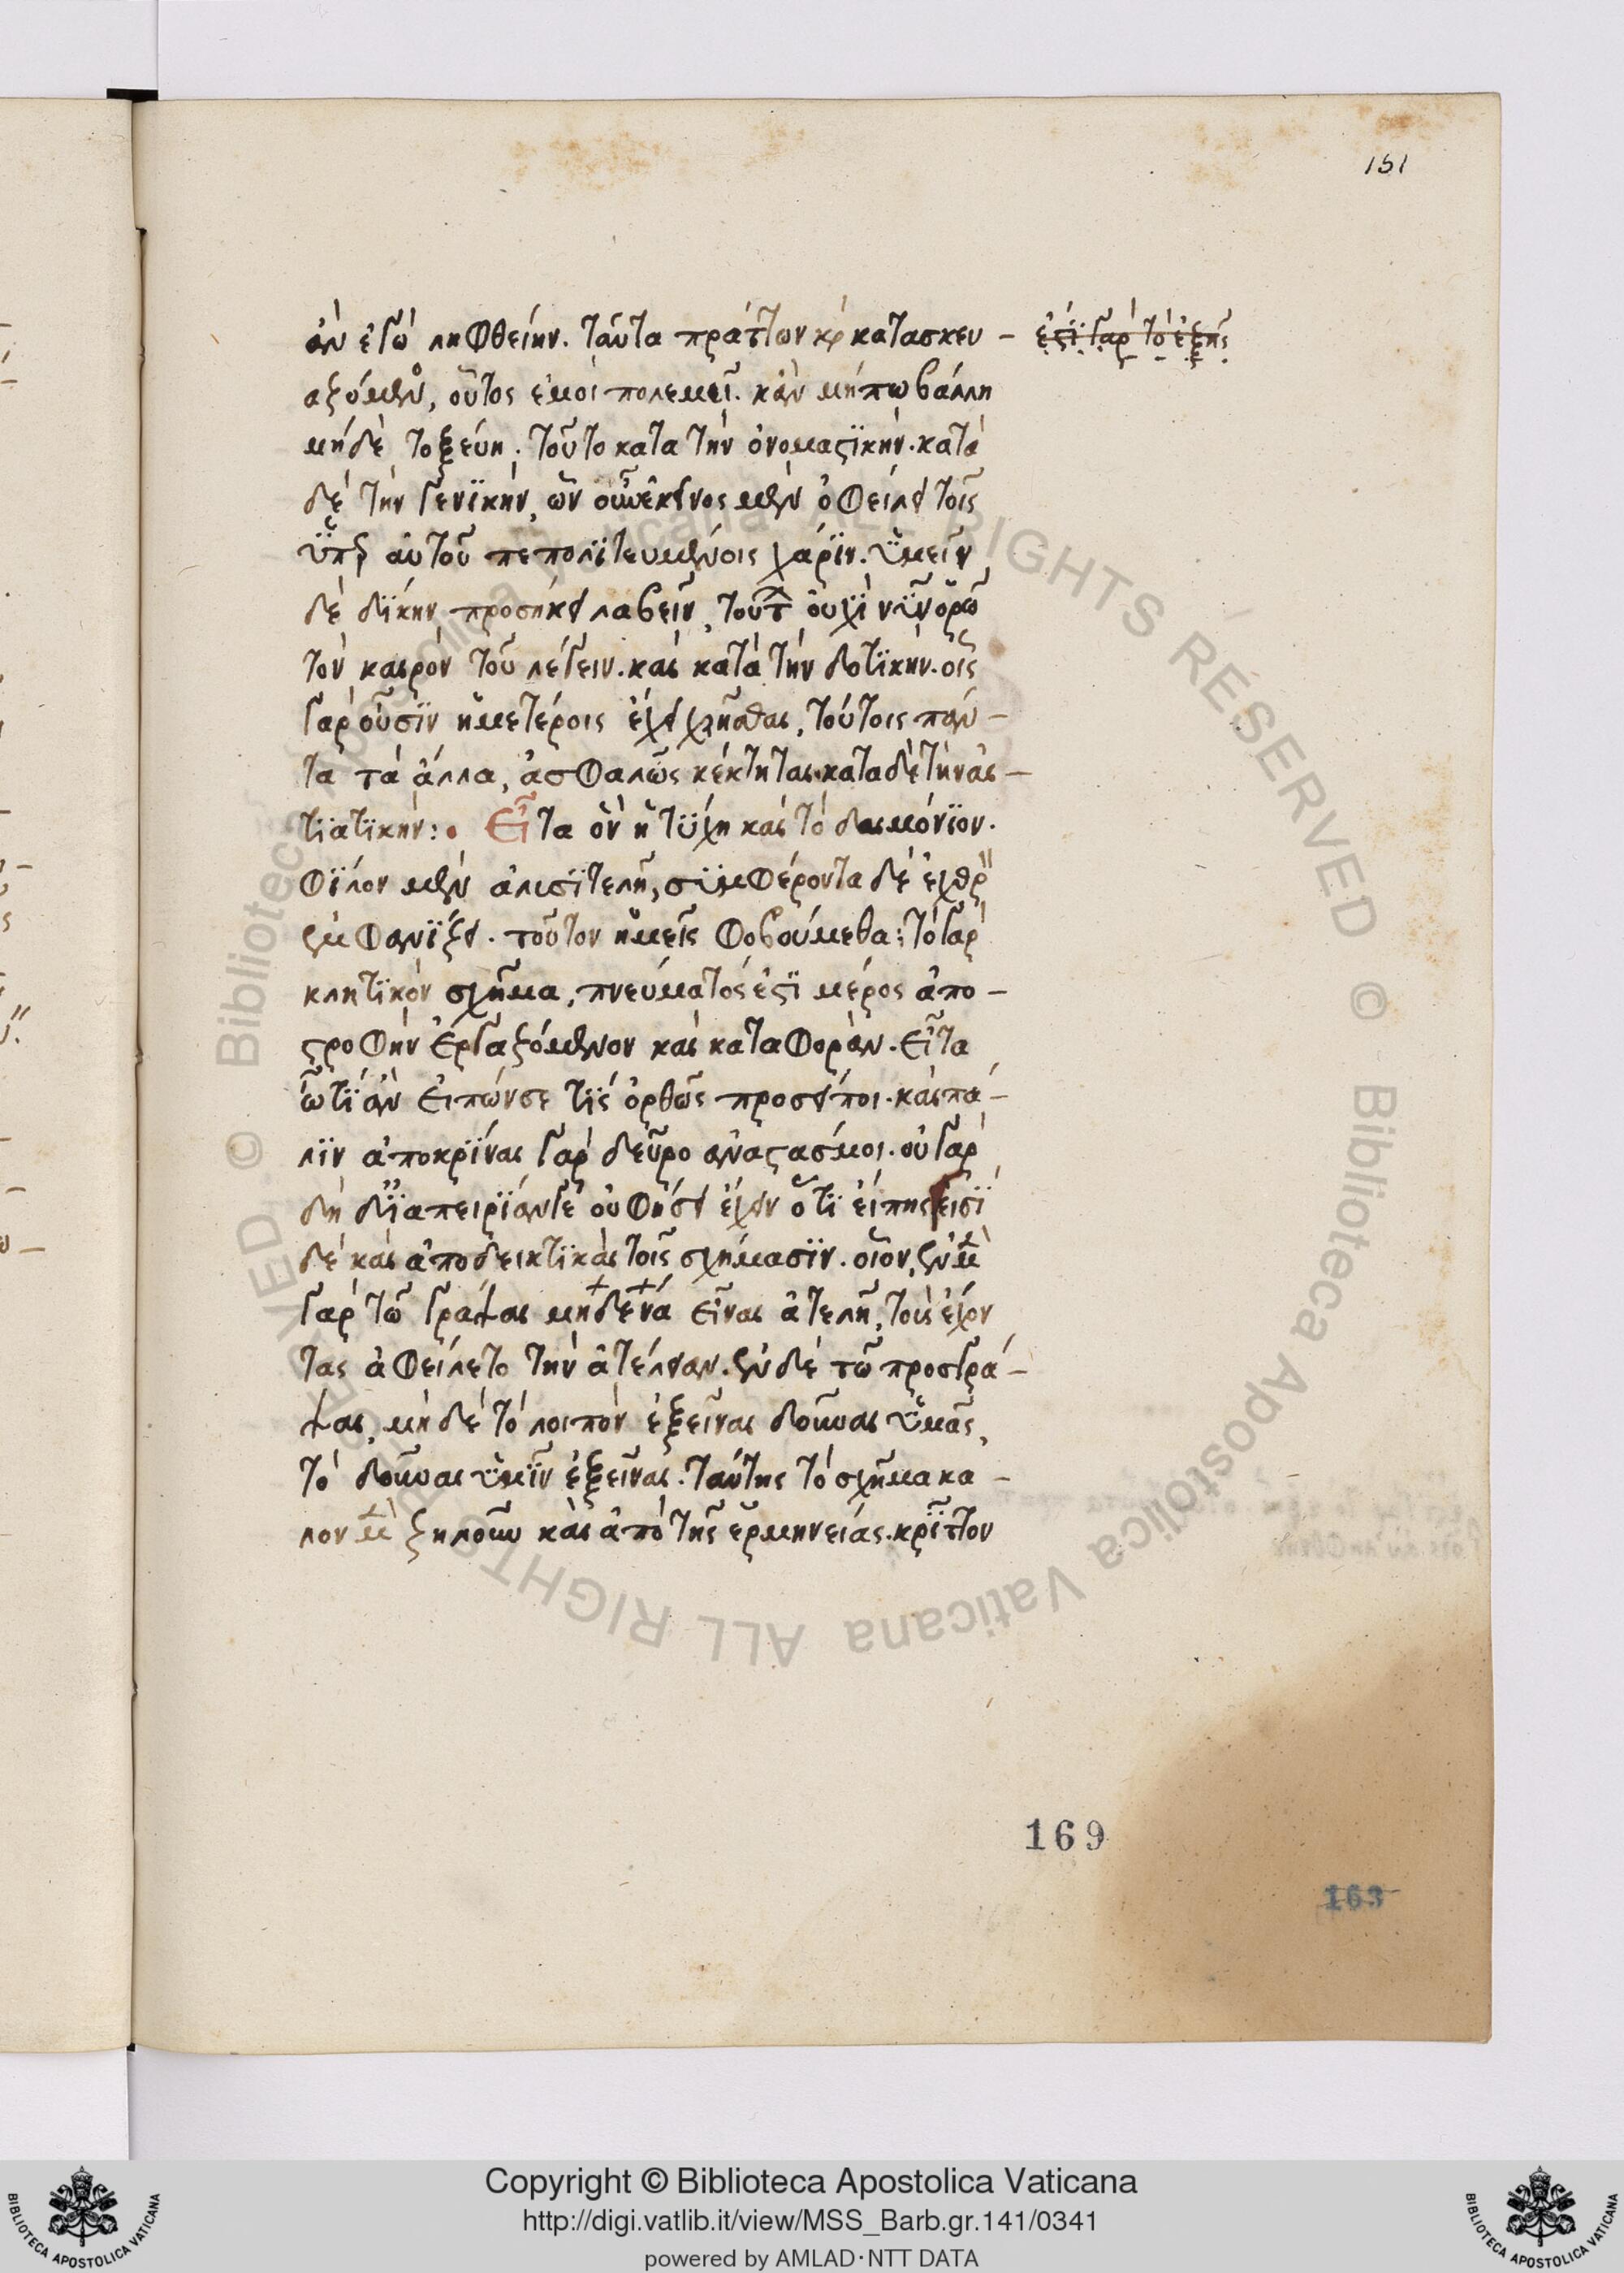 151
ἂν ἐγὼ ληφθείην. ταῦτα πράττων κ(αὶ) κατασκευ –
αζόμενος, οὗτος ἐμοὶ πολεμεῖ. κἂν μήπω βάλλη
μηδὲ τοξεύη. τοῦτο κατα τὴν ὀνομαστϊκήν. κατὰ
δὲ τὴν γενϊκήν, ὧν οὖν ἐκεῖνος μὲν ὀφείλει τοῖς
ὑπὲρ αὐτοῦ πεπολϊτευμένοις χάρϊν. ὑμεῖν
δὲ δίκην προσήκει λαβεῖν, τούτ οὐχὶ νῦν ὁρῶ
τὸν καιρὸν τοῦ λέγειν. καὶ κατὰ τὴν δοτϊκήν. οἷς
γὰρ οὖσϊν ἡμετέροις ἔχει χρῆσθαι, τούτοις πάν –
τα τὰ ἄλλα, ἀσφαλῶς κέκτηται. κατα δὲ τὴν αἰ –
τιατϊκήν: Εἶτα ὃν ἡ τύχη καὶ τὸ δαιμόνϊον.
φϊλον μὲν ἀλυσϊτελῆ, συμφέροντα δὲ ἐχθρ
ἐμφανίζει. τοῦτον ἡμεῖς φοβούμεθα: τὸ γὰρ
κλητϊκὸν σχῆμα, πνεύματός ἐστϊ μέρος ἀπο –
στροφὴν ἐργαζόμενον καὶ καταφοράν. εἶτα
ὦ τί ἂν εἰπών σε τίς ὀρθῶς προσείποι. καὶ πά –
λϊν ἀποκρϊναι γὰρ δεῦρο ἀναστάς μοι. οὐ γὰρ
δὴ δϊ ἀπειρίαν γε οὐ φήσει ἔχειν ὅ τϊ εἴπης εἰσὶ
δὲ καὶ ἀποδεικτϊκαὶ τοῖς σχήμασϊν. οἷον, ἐν μὲ
γὰρ τῶ γράψαι μηδενα εἶναι ἀτελῆ, τοὺς ἔχον
τας ἀφείλετο τὴν ἀτέλειαν. ἐν δὲ τῶ προσγρά –
ψαι, μὴ δὲ τὸ λοιπὸν ἐξεῖναι δοῦναι ὑμᾶς,
τὸ δοῦναι ὑμῖν ἐξεῖναι. ταύτης τὸ σχῆμα κα –
λον μὲ ζηλοῦν καὶ ἀπὸ τῆς ἑρμηνείας. κρϊττον
ἔστϊ γὰρ τὸ ἑξῆς
169
163
Copyright © Biblioteca Apostolica Vaticana
http://digi.vatlib.it/view/MSS_Barb.gr.141/0341
powered by AMLAD·NTT DATA
BIBLIOTECA APOSTOLICA VATICANA
BIBLIOTECA APOSTOLICA VATICANA
© Biblioteca Apostolica Vaticana ALL RIGHTS RESERVED © Biblioteca Apostolica Vaticana ALL RIGHTS RESERVED